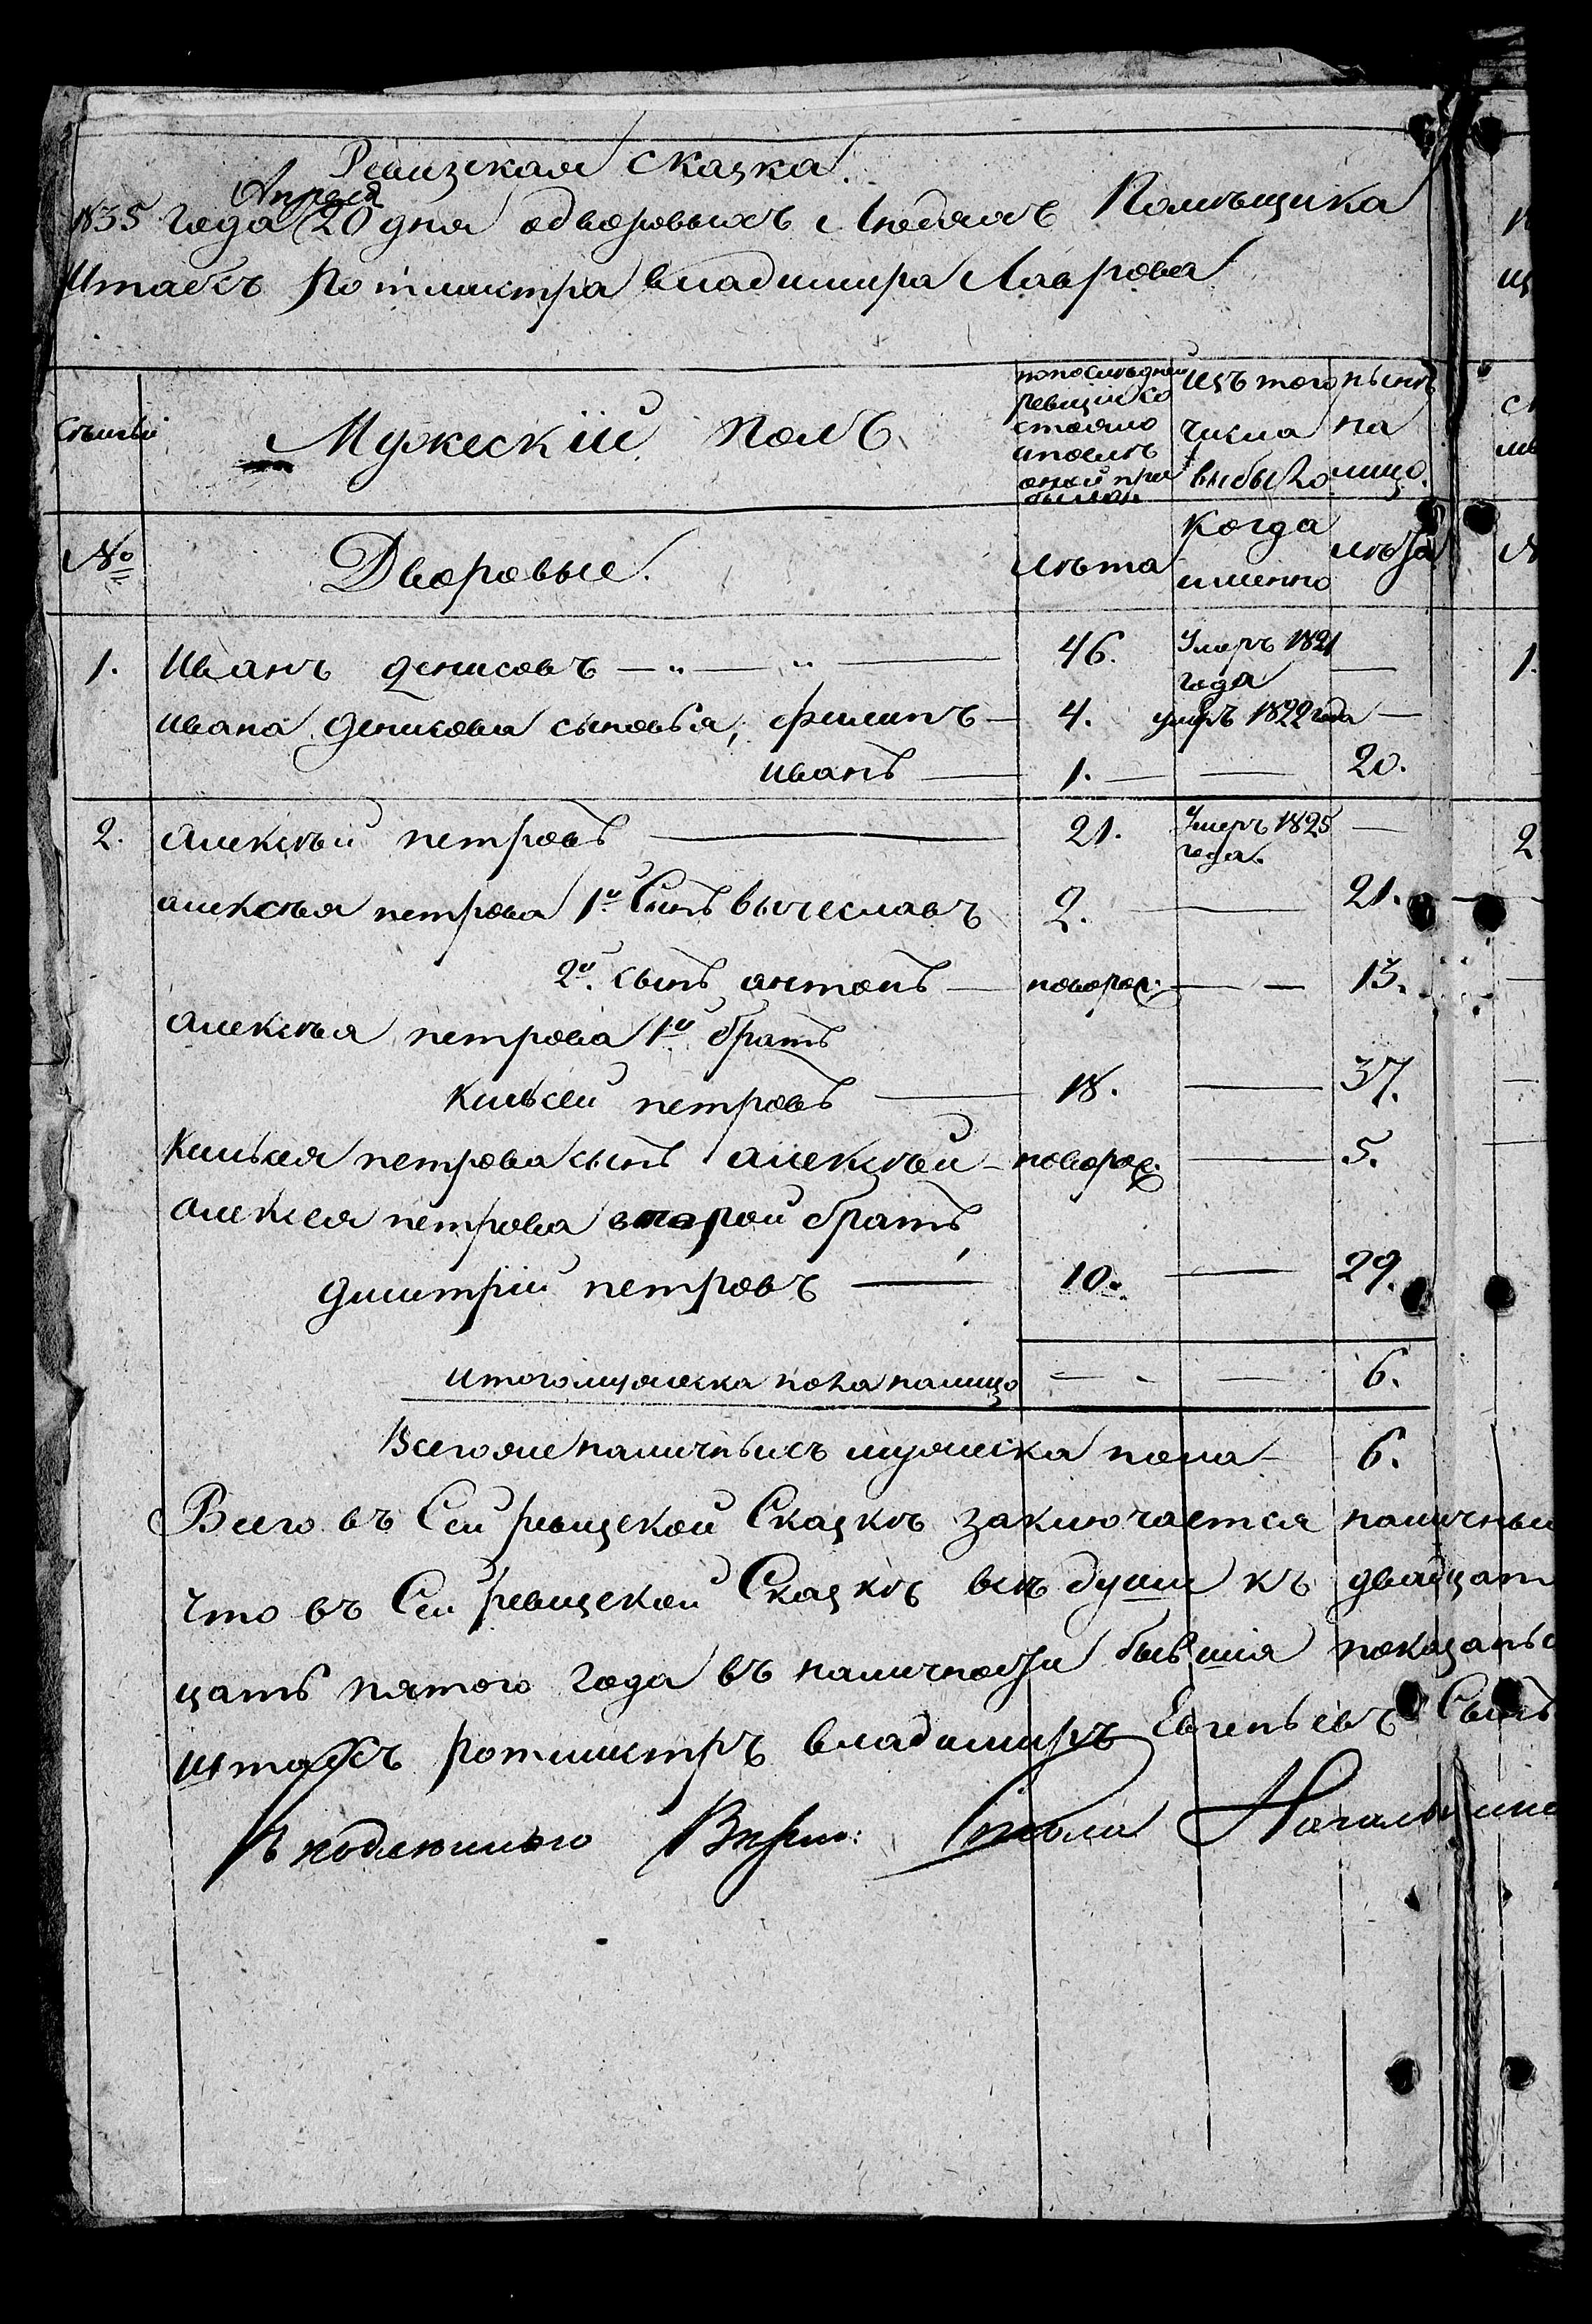 Ревизская сказка.
Апреля
1835 года 20 дня одворовыхъ Людяхъ Помѣщика
Штабсъ Ротмистра Владимира Лаврова
Семьи
Мужескій полъ
попослѣдней ревизіи состояло ипослѣ оной прибыло
изъ того числа выбыло
нынѣ на лицо.
№
Дворовые.
Лѣта
Когда именно
лѣта
1. Иванъ денисовъ — „ — „ — 46. Умеръ 1821 года —
Ивана Денисова сыновья, филипъ — 4. умеръ 1822 года —
иванъ — 1. — — 20.
2. алексѣй петровъ — 21. Умеръ 1825 года. —
алексѣя петрова 1й Сынъ вычеславъ 2. — 21.
2й. сынъ антонъ — новорож: — — 13.
алексѣя петрова 1й братъ
Кильсей петровъ — 18. — 37.
Кильсея петрова сынъ алексѣй — новорож: — 5.
алексея петрова второй братъ,
дмитрій петровъ — 10. — 29.
итогомужеска пола налицо — - — 6.
Всегоже наличныхъ мужеска пола — 6.
Всего въ Сей ревизской Сказкѣ заключается наличны
что въ Сей ревизской Сказкѣ всѣ души къ двадцат
цать пятого года въ наличности бывшія показаны
штабсъ ротмистръ Владимиръ Евгеньевъ Сынъ